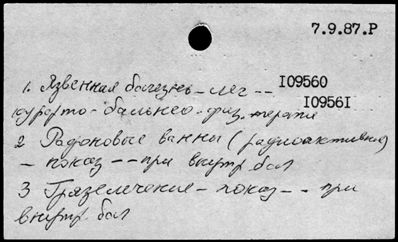 7.9.87.Р
1. Язвенная болезнь – леч –– 109560
курорто-бальнео-физ. терапия 109561
2 Радоновые ванны (радиоактивные)
– показ –– при внутр бол
3 Грязелечение – показ –– при
внутр. бол